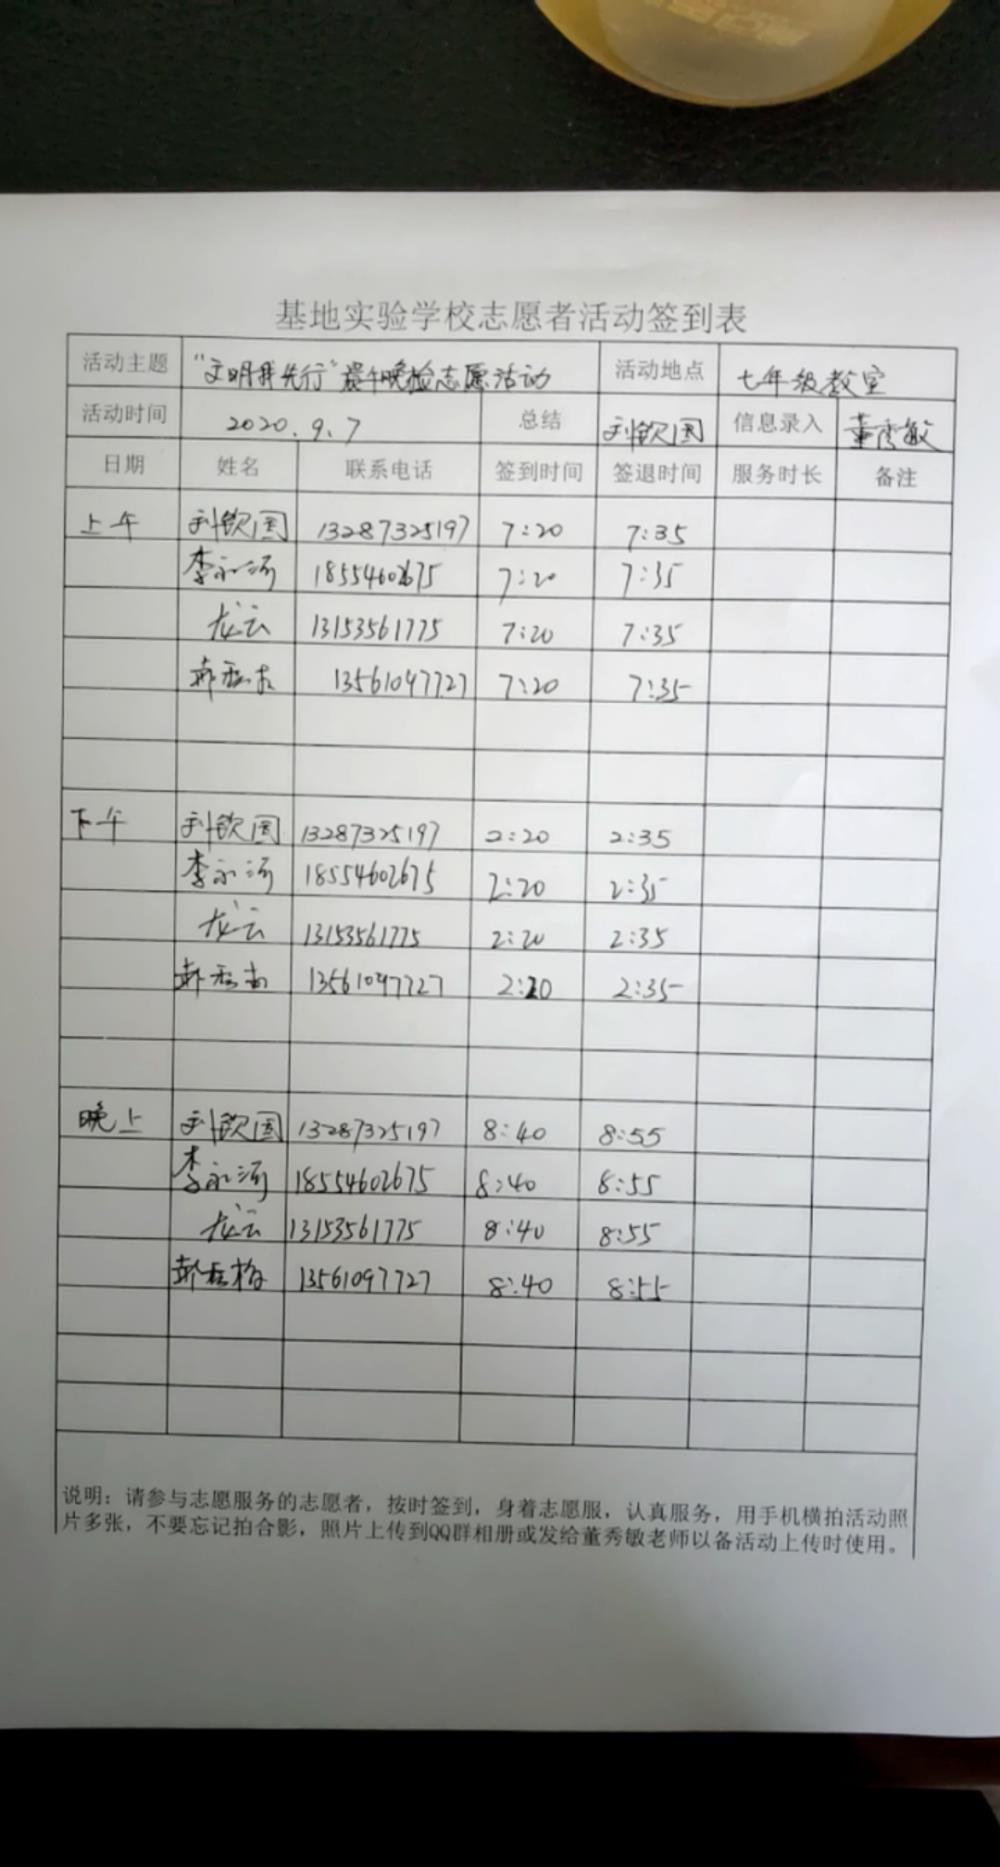 基地实验学校志愿者活动签到表
活动主题 "文明我先行"晨午晚检志愿活动 活动地点 七年级教室
活动时间 2020.9.7 总结 刘钦国 信息录入 董秀敏
日期 姓名 联系电话 签到时间 签退时间 服务时长 备注
上午 刘钦国 13287325197 7:20 7:35
李永河 18554602675 7:20 7:35
龙云 13153561775 7:20 7:35
13561097727 7:20 7:35
下午 刘钦国 13287325197 2:20 2:35
李永河 18554602675 2:20 2:35
龙云 13153561775 2:20 2:35
13561097727 2:20 2:35
晚上 刘钦国 13287325197 8:40 8:55
李永河 18554602675 8:40 8:55
龙云 13153561775 8:40 8:55
13561097727 8:40 8:55
说明：请参与志愿服务的志愿者，按时签到，身着志愿服，认真服务，用手机横拍活动照
片多张，不要忘记拍合影，照片上传到QQ群相册或发给董秀敏老师以备活动上传时使用。